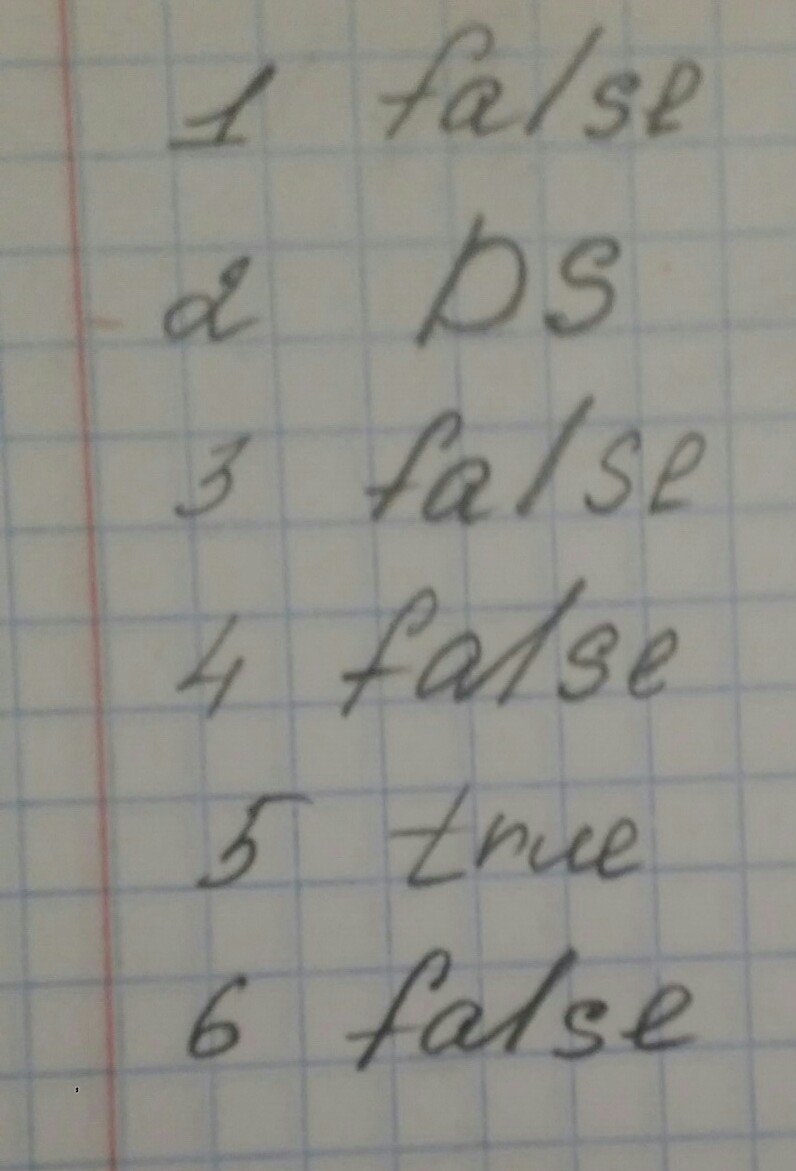 1 false
2 DS
3 false
4 false
5 true
6 false